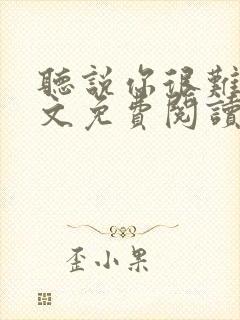 聽說你很難
文免費閱讀
歪小果